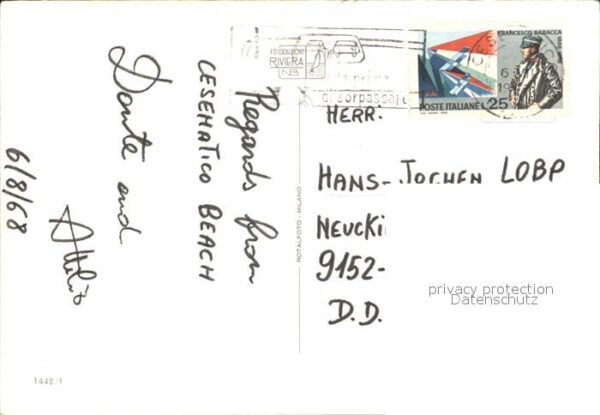 6/8/68
Regards from
CESENATICO BEACH
Dante and
Attilio
1448/1
ROTALFOTO - MILANO
FOTOEDIZIONI
RIVIERA
da prima
di sorpassare
FRANCESCO BARACCA
POSTE ITALIANE L. 25
HERR:
HANS-JOCHEN LOBP
NEUCKI
9152-
D.D.
privacy protection
Datenschutz